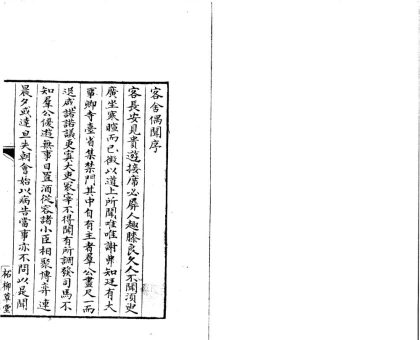 客舍偶聞序
客長安見貴遊接席必屏人趣膝良久人不聞須臾
廣坐寒暄而已微以道上所聞唯唯謝弗知廷有大
事卿寺臺省集禁門其中自有主者羣公畫尺一而
退咸諾諾議更寘大吏冢宰不得聞有所調發司馬不
知羣公優遊無事日置酒從容諸小臣相聚博弈連
晨夕或達旦失朝會始以病告當事亦不問以是聞
柘柳草堂